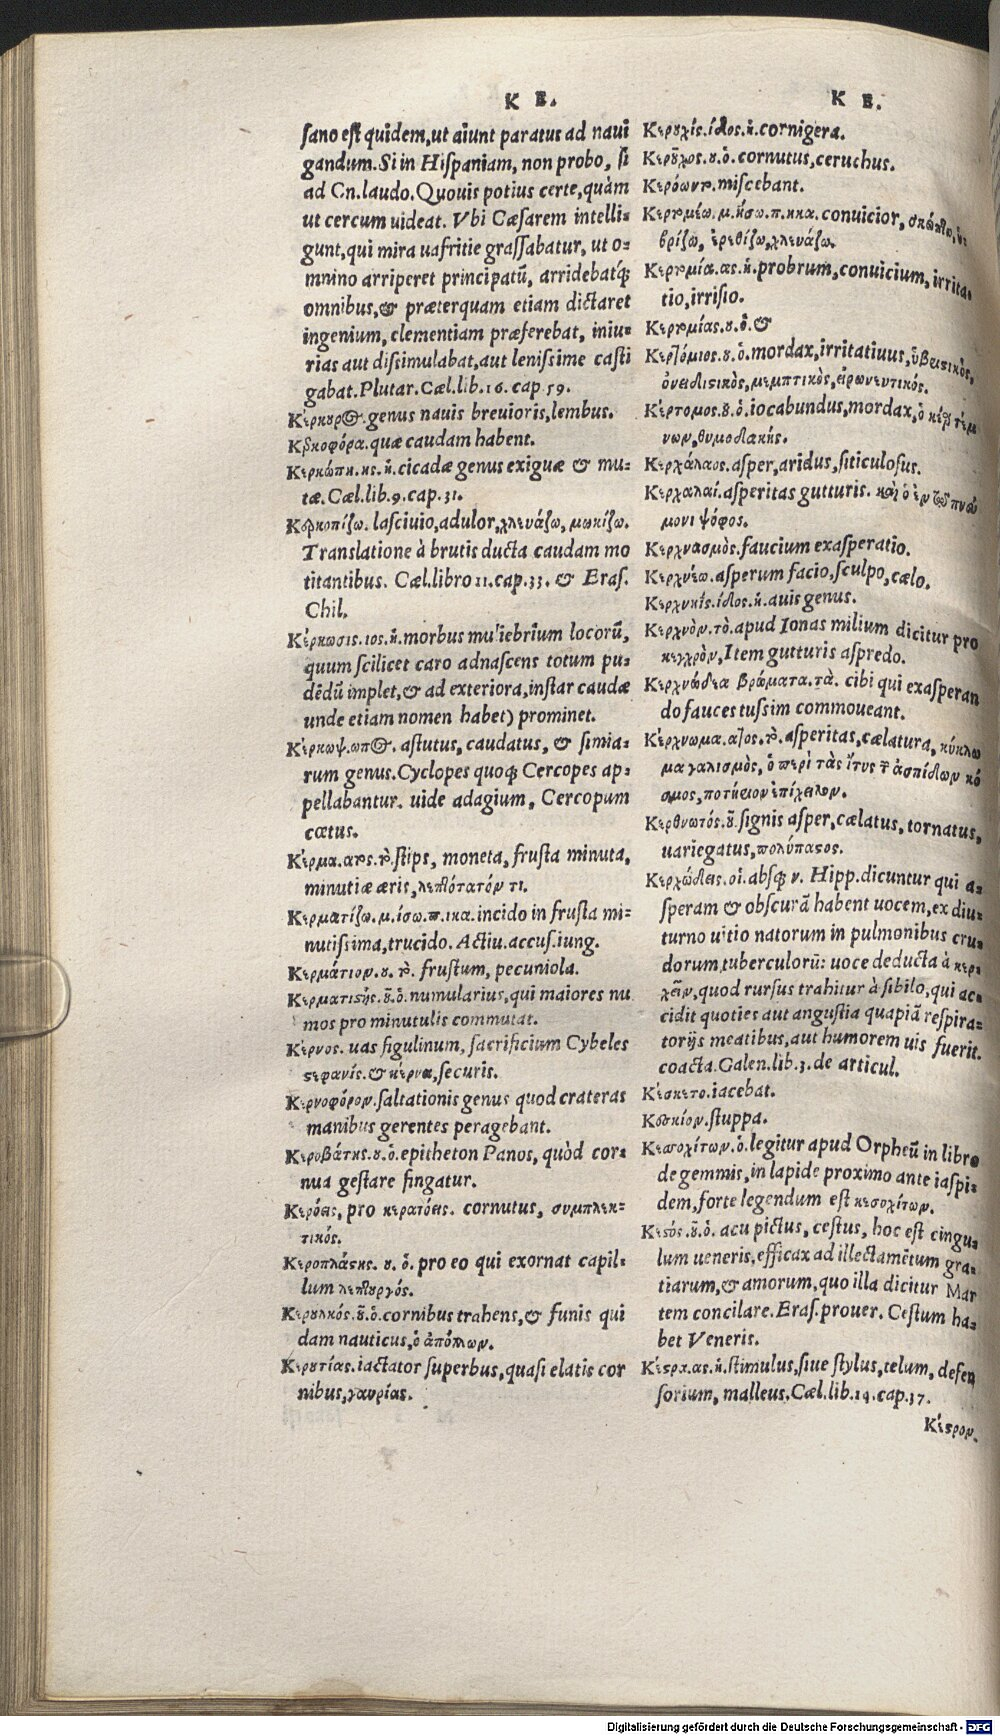 K E.
sano est quidem, ut aiunt paratus ad naui
gandum. Si in Hispaniam, non probo, si
ad Cn. laudo. Quouis potius certe, quàm
ut cercum uideat. Vbi Cæsarem intelli-
gunt, qui mira uafritie grassabatur, ut o-
mnino arriperet principatū, arridebatq́;
omnibus, & præterquam etiam dictaret
ingenium, clementiam præferebat, iniu-
rias aut dissimulabat, aut lenissime casti
gabat. Plutar. Cæl. lib. 16. cap. 59.
Κέρκυρος. genus nauis breuioris, lembus.
Κερκοφόρα. quæ caudam habent.
Κερκώπη. ης. ἡ. cicadæ genus exiguæ & mu-
tæ. Cæl. lib. 9. cap. 31.
Κερκοπίζω. lasciuio, adulor, χλευάζω, μωκίζω.
Translatione à brutis ducta caudam mo
titantibus. Cæl. libro 11. cap. 33. & Eras.
Chil.
Κέρκωσις. ιος. ἡ. morbus muliebrium locorū,
quum scilicet caro adnascens totum pu-
dēdū implet, & ad exteriora, instar caudæ
unde etiam nomen habet) prominet.
Κέρκωψ. ωπος. astutus, caudatus, & simia-
rum genus. Cyclopes quoq; Cercopes ap-
pellabantur. uide adagium, Cercopum
cœtus.
Κέρμα. ατος. τὸ. stips, moneta, frusta minuta,
minutiæ æris, λεπτότατόν τι.
Κερματίζω. μ. ίσω. π. ικα. incido in frusta mi-
nutissima, trucido. Actiu. accus. iung.
Κερμάτιον. ου. τὸ. frustum, pecuniola.
Κερματιστής. οῦ. ὁ. numularius, qui maiores nu
mos pro minutulis commutat.
Κέρνος. uas figulinum, sacrificium Cybeles
στεφανίς. & κέρνα, securis.
Κερνοφόρον. saltationis genus quod crateras
manibus gerentes peragebant.
Κεροβάτης. ου. ὁ. epitheton Panos, quòd cor-
nua gestare fingatur.
Κερόεις, pro κερατόεις. cornutus, συμπλεκ-
τικός.
Κεροπλάστης. ου. ὁ. pro eo qui exornat capil-
lum λεπτουργός.
Κερουλκός. οῦ. ὁ. cornibus trahens, & funis qui
dam nauticus, ὁ ἀπόλλων.
Κερουτίας. iactator superbus, quasi elatis cor
nibus, γαυρίας.
K E.
Κερουχίς. ίδος. ἡ. cornigera.
Κεροῦχος. ου. ὁ. cornutus, ceruchus.
Κερόωντο. miscebant.
Κερτομέω. μ. ήσω. π. ηκα. conuicior, σκώπτω, ὑ-
βρίζω, ἐρεθίζω, χλευάζω.
Κερτομία. ας. ἡ. probrum, conuicium, irrita-
tio, irrisio.
Κερτομίας. ου. ὁ. &
Κερτόμιος. ου. ὁ. mordax, irritatiuus, ὑβριστικὸς,
ὀνειδιστικὸς, μεμπτικὸς, εἰρωνευτικός.
Κέρτομος. ου. ὁ. iocabundus, mordax, ὁ κέαρ τέμ
νων, θυμοδακής.
Κερχάλαος. asper, aridus, siticulosus.
Κερχαλαί. asperitas gutturis. καὶ ὁ ἐν τῷ πνεύ
μονι ψόφος.
Κερχνασμὸς. faucium exasperatio.
Κερχνέω. asperum facio, sculpo, cælo.
Κερχνηΐς. ίδος. ἡ. auis genus.
Κέρχνον. τὸ. apud Ionas milium dicitur pro
κεγχρὸν, Item gutturis aspredo.
Κερχνώδεα βρώματα. τὰ. cibi qui exasperan
do fauces tussim commoueant.
Κέρχνωμα. ατος. τὸ. asperitas, cælatura, κύκλω
μα γαλισμὸς, ὁ περὶ τὰς ἴτυς τ ἀσπίδων κό
σμος, ποτήριον ἐπίχειλον.
Κερθνωτός. οῦ. signis asper, cælatus, tornatus,
uariegatus, πολύπαστος.
Κερχώδεις. οἱ. absq; ν. Hipp. dicuntur qui a-
speram & obscurā habent uocem, ex diu-
turno uitio natorum in pulmonibus cru-
dorum tuberculorū: uoce deducta à κερ-
χεῖν, quod rursus trahitur à sibilo, qui ac-
cidit quoties aut angustia quapiā respira-
torijs meatibus, aut humorem uis fuerit.
coacta. Galen. lib. 3. de articul.
Κέσκετο. iacebat.
Κεσκίον. stuppa.
Κεσοχίτων. ὁ. legitur apud Orpheū in libro
de gemmis, in lapide proximo ante iaspi-
dem, forte legendum est κεσοχίτων.
Κεστός. οῦ. ὁ. acu pictus, cestus, hoc est cingu-
lum ueneris, efficax ad illectamētum gra-
tiarum, & amorum, quo illa dicitur Mar
tem concilare. Eras. prouer. Cestum ha-
bet Veneris.
Κέστρα. ας. ἡ. stimulus, siue stylus, telum, defen
sorium, malleus. Cæl. lib. 14. cap. 37.
Κέστρον.
Digitalisierung gefördert durch die Deutsche Forschungsgemeinschaft - DFG